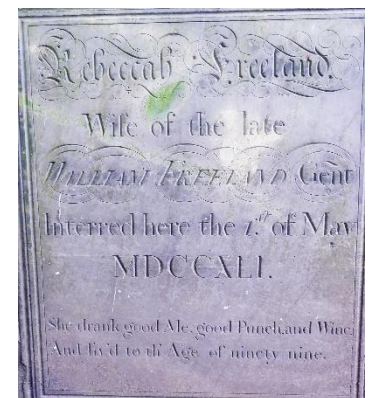 Rebeccah Freeland,
Wife of the late
WILLIAM FREELAND Gent
Interred here the 1.st of May
MDCCXLI.
She drank good Ale, good Punch and Wine,
And liv'd to th' Age of ninety nine.